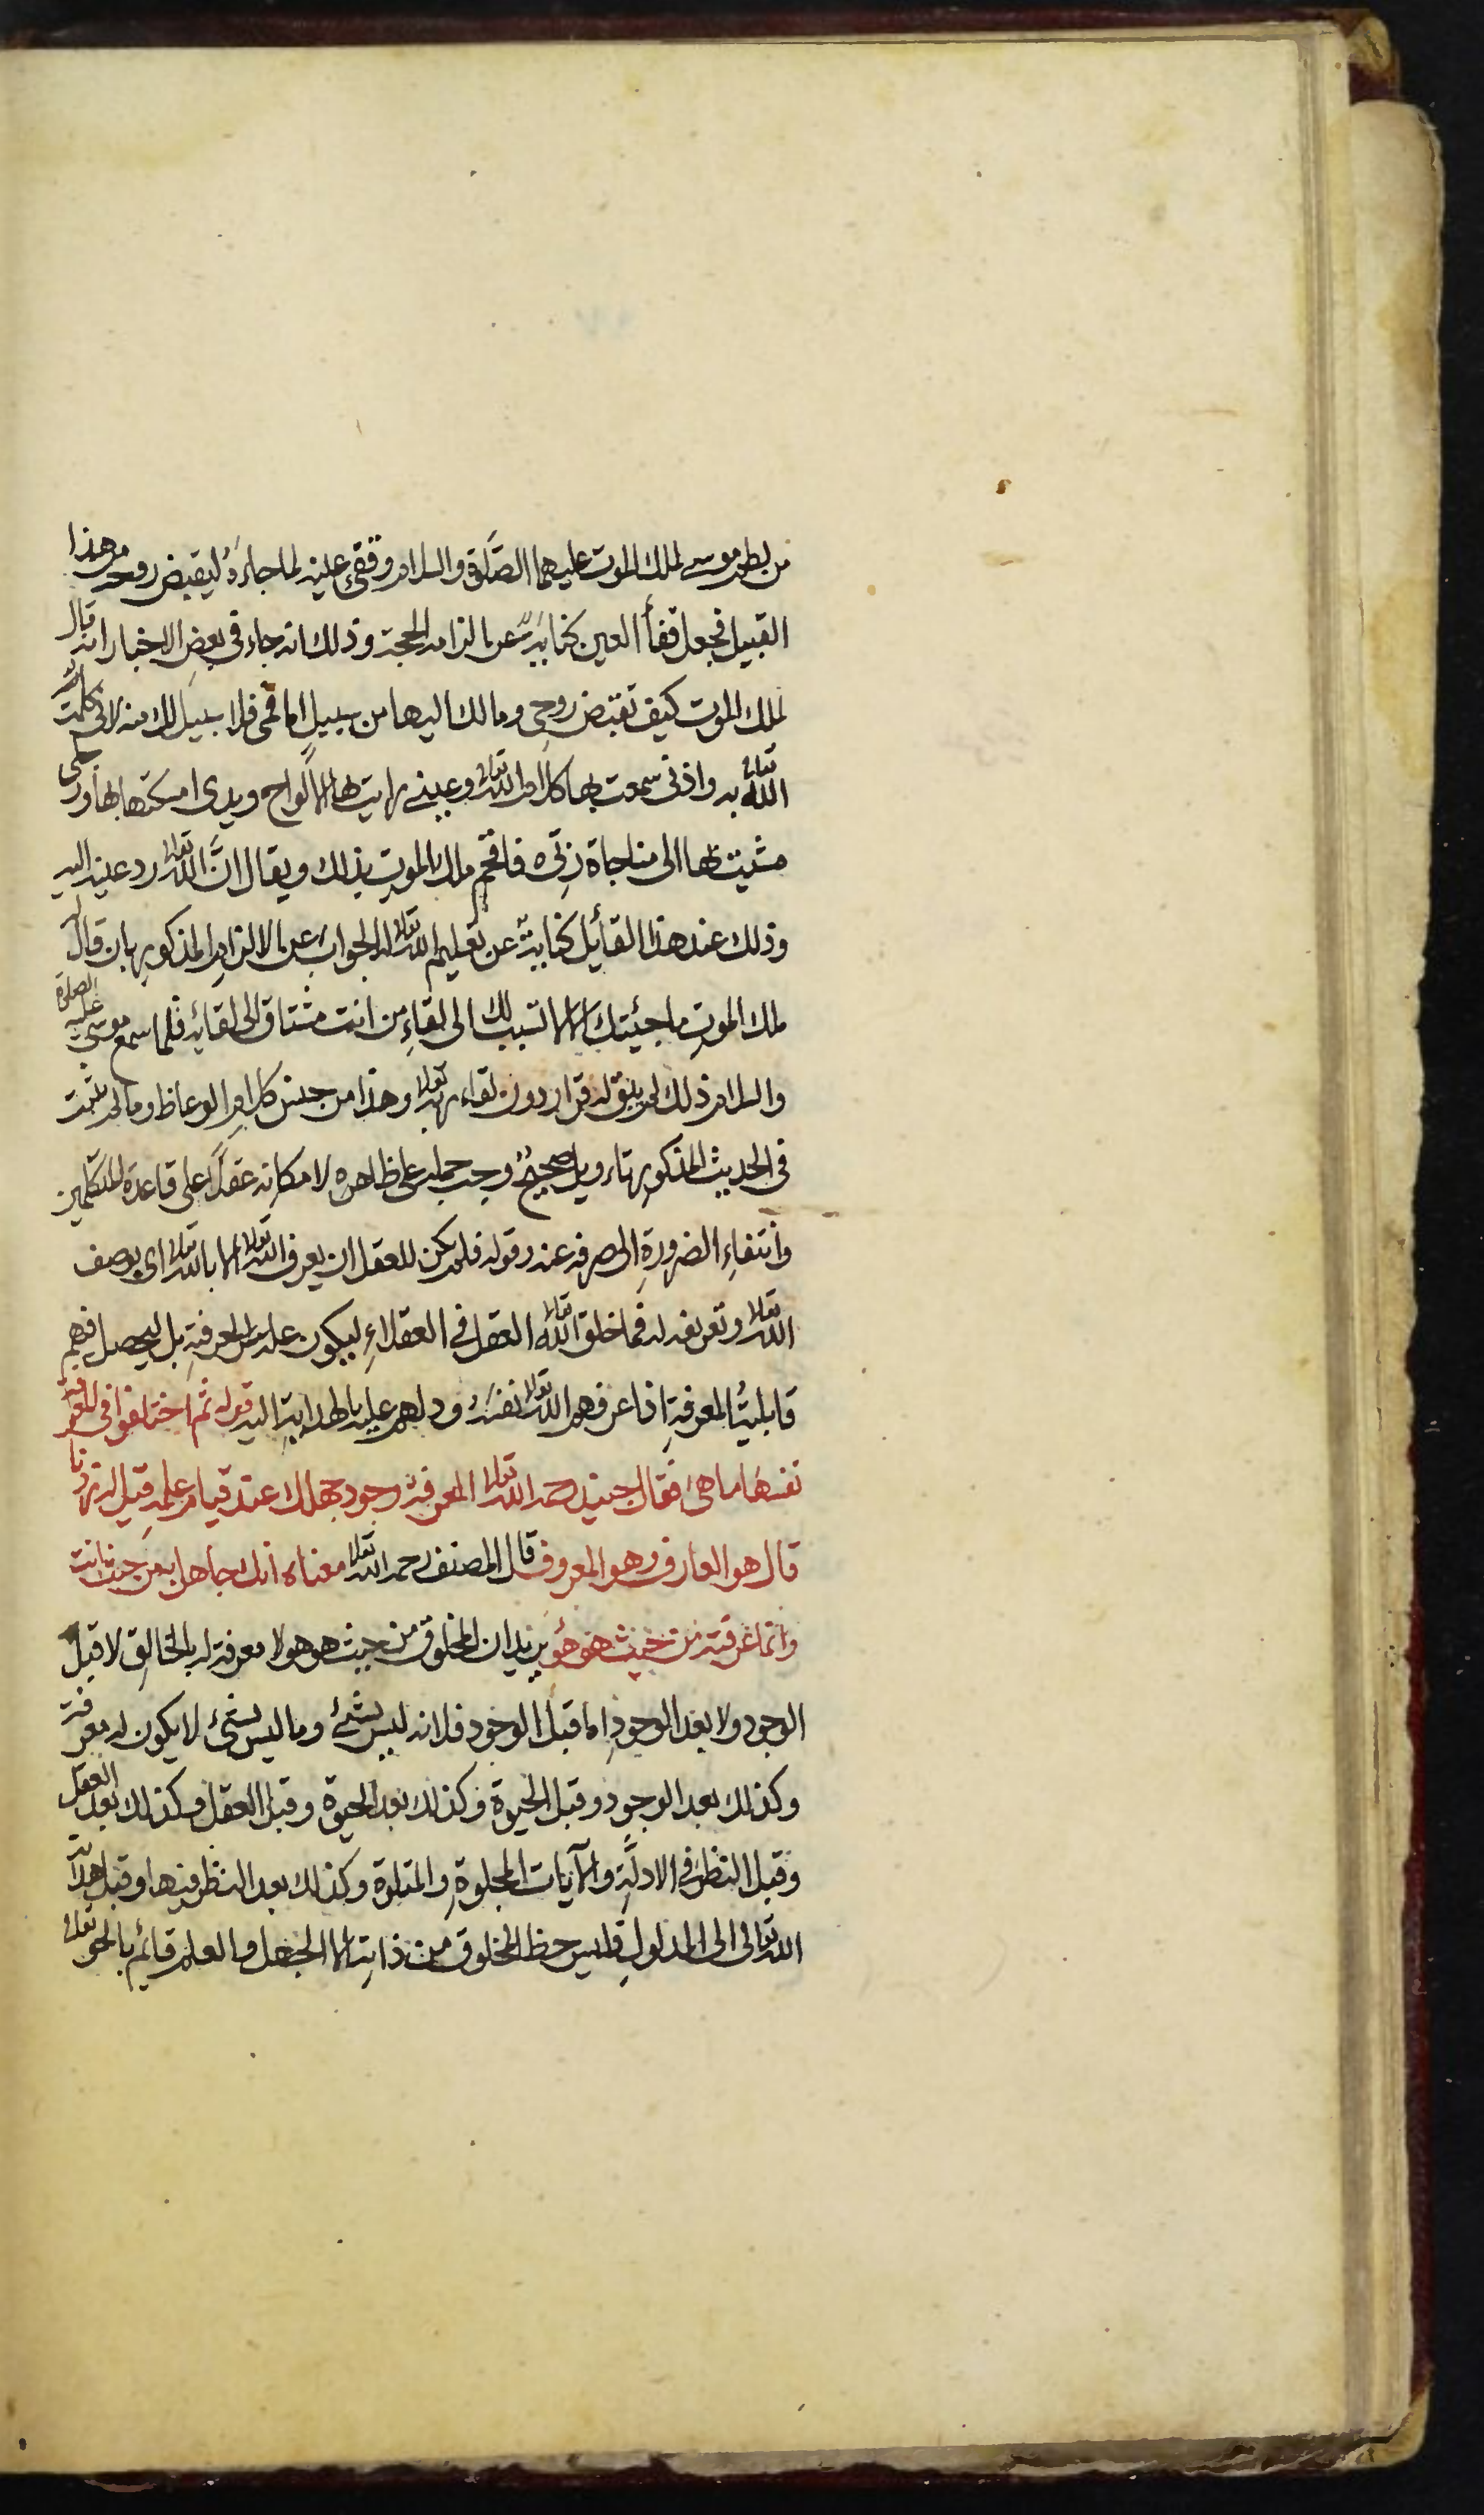 من لطم موسى لملك الموت عليهما الصلوة والسلام وفقئ عينه لما جاءه ليقبض روحه من هذا
القبيل فجعل فقأ العين كناية عن الزامه الحجة وذلك انه جاء في بعض الاخبار انه قال
لملك الموت كيف تقبض روحي ومالك اليها من سبيل اما فمي فلا سبيل لك منه لاني كلمت
الله تعالى به واذني سمعت بها كلام الله تعالى وعيني رايت بها الالواح ويدي امسكتها بها ورجلي
مشيت بها الى مناجاة ربي فافحم ملك الموت بذلك ويقال ان الله تعالى رد عينه اليه
وذلك عند هذا القائل كناية عن تعليم الله تعالى له الجواب عن الالزام المذكور بان قال له
ملك الموت ما جئيتك الا لاتسبب لك الى لقاء من انت مشتاق الى لقائه فلما سمع موسى عليه الصلوة
والسلام ذلك لم يبق له قرار دون لقاء ربه تعالى وهذا من جنس كلام الوعاظ وما لم يثبت
في الحديث المذكور تاءويل صحيح وجب حمله على ظاهره لامكانه عقلا على قاعدة المتكلمين
وانتفاء الضرورة الى صرفه عنه وقوله فلم يكن للعقل ان يعرف الله تعالى الا بالله تعالى اي بوصف
الله تعالى وتعريفه له فما خلق الله تعالى العقل في العقلاء ليكون علة للمعرفة بل ليحصل فيهم
قابلية المعرفة اذا عرفهم الله تعالى نفسه ودلهم عليه بالهداية اليه قوله ثم اختلفوا في المعرفة
نفسها ما هي فقال جنيد رحمه الله تعالى المعرفة وجود جهلك عند قيام علمه قيل له زدنا
قال هو العارف وهو المعروف قال المصنف رحمه الله تعالى معناه انك جاهل به من حيث انت
وانما عرفته من حيث هو هو يريد ان المخلوق من حيث هو هو لا معرفة له بالخالق لا قبل
الوجود ولا بعد الوجود اما قبل الوجود فلانه ليس بشئ وما ليس بشئ لا يكون له معرفة
وكذلك بعد الوجود وقبل الحيوة وكذلك بعد الحيوة وقبل العقل وكذلك بعد العقل
وقبل النظر في الادلة والآيات المجلوة والمتلوة وكذلك بعد النظر فيها وقبل هداية
الله تعالى الى المدلول فليس حظ المخلوق من ذاته الا الجهل والعلم قائم بالحق تعالى